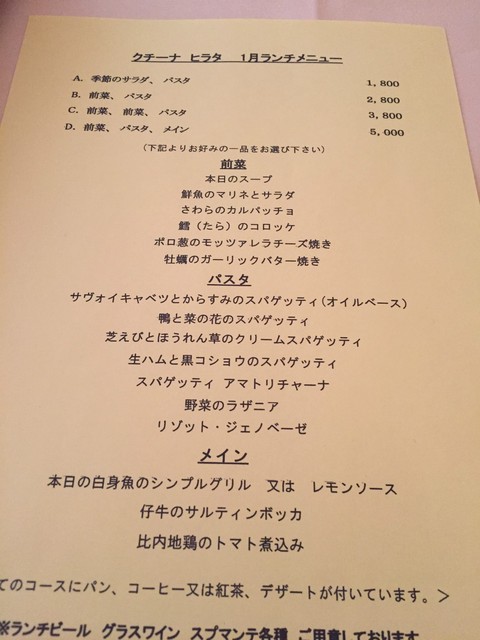 クチーナ ヒラタ 1月ランチメニュー
A. 季節のサラダ、 パスタ 1,800
B. 前菜、 パスタ 2,800
C. 前菜、 前菜、 パスタ 3,800
D. 前菜、 パスタ、 メイン 5,000
(下記よりお好みの一品をお選び下さい)
前菜
本日のスープ
鮮魚のマリネとサラダ
さわらのカルパッチョ
鱈(たら)のコロッケ
ポロ葱のモッツァレラチーズ焼き
牡蠣のガーリックバター焼き
パスタ
サヴォイキャベツとからすみのスパゲッティ(オイルベース)
鴨と菜の花のスパゲッティ
芝えびとほうれん草のクリームスパゲッティ
生ハムと黒コショウのスパゲッティ
スパゲッティ アマトリチャーナ
野菜のラザニア
リゾット・ジェノベーゼ
メイン
本日の白身魚のシンプルグリル 又は レモンソース
仔牛のサルティンボッカ
比内地鶏のトマト煮込み
てのコースにパン、コーヒー又は紅茶、デザートが付いています。>
※ランチビール グラスワイン スプマンテ各種 ご用意しております